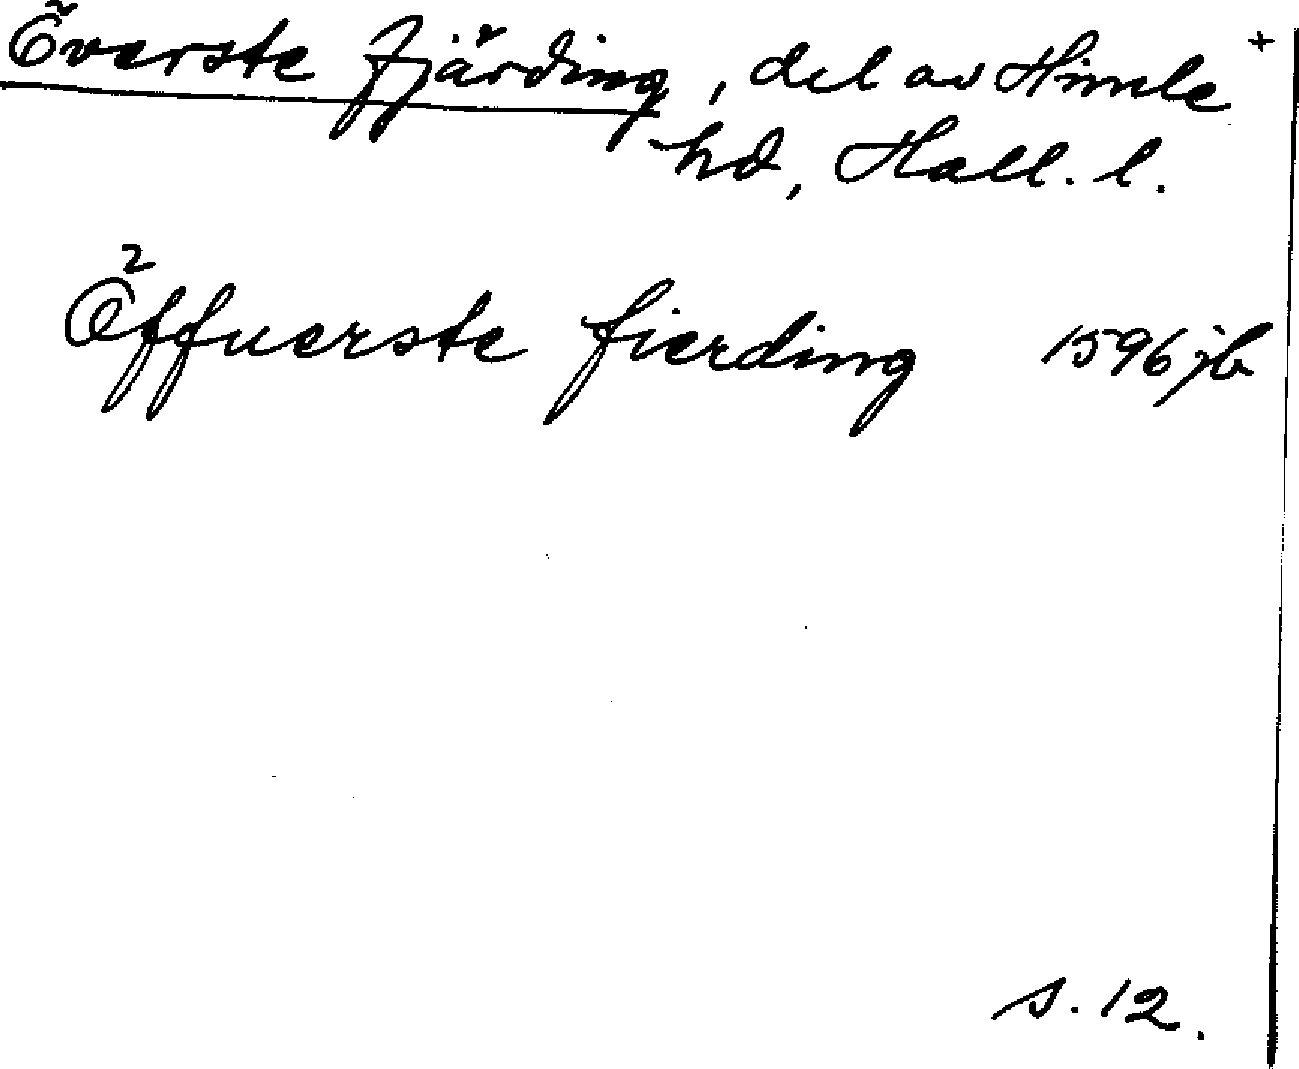 Överste fjärding, del av Himle +
hd, Hall. l.
Öffuerste fierding 1596 jb
s. 12.